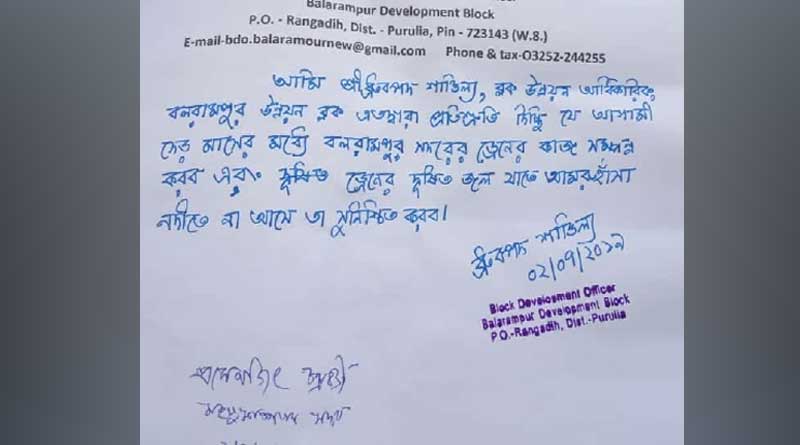 Balarampur Development Block
P.O. - Rangadih, Dist. - Purulia, Pin - 723143 (W.B.)
E-mail-bdo.balaramournew@gmail.com Phone & tax-03252-244255
আমি শ্রী ধ্রুবপদ শান্ডিল্য, ব্লক উন্নয়ন আধিকারিক,
বলরামপুর উন্নয়ন ব্লক এতদ্বারা প্রতিশ্রুতি দিচ্ছি যে আগামী
দেড় মাসের মধ্যে বলরামপুর শহরের ড্রেনের কাজ সম্পন্ন
করব এবং ড্রেনের দূষিত জল যাতে আমরুহাঁসা
নদীতে না আসে তা সুনিশ্চিত করব।
ধ্রুবপদ শান্ডিল্য
Block Development Officer
Balarampur Development Block
P.O.-Rangadih, Dist.-Purulia